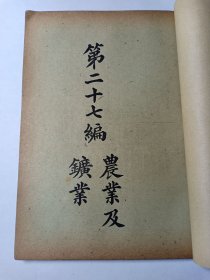 第二十七編
農業及
鑛業